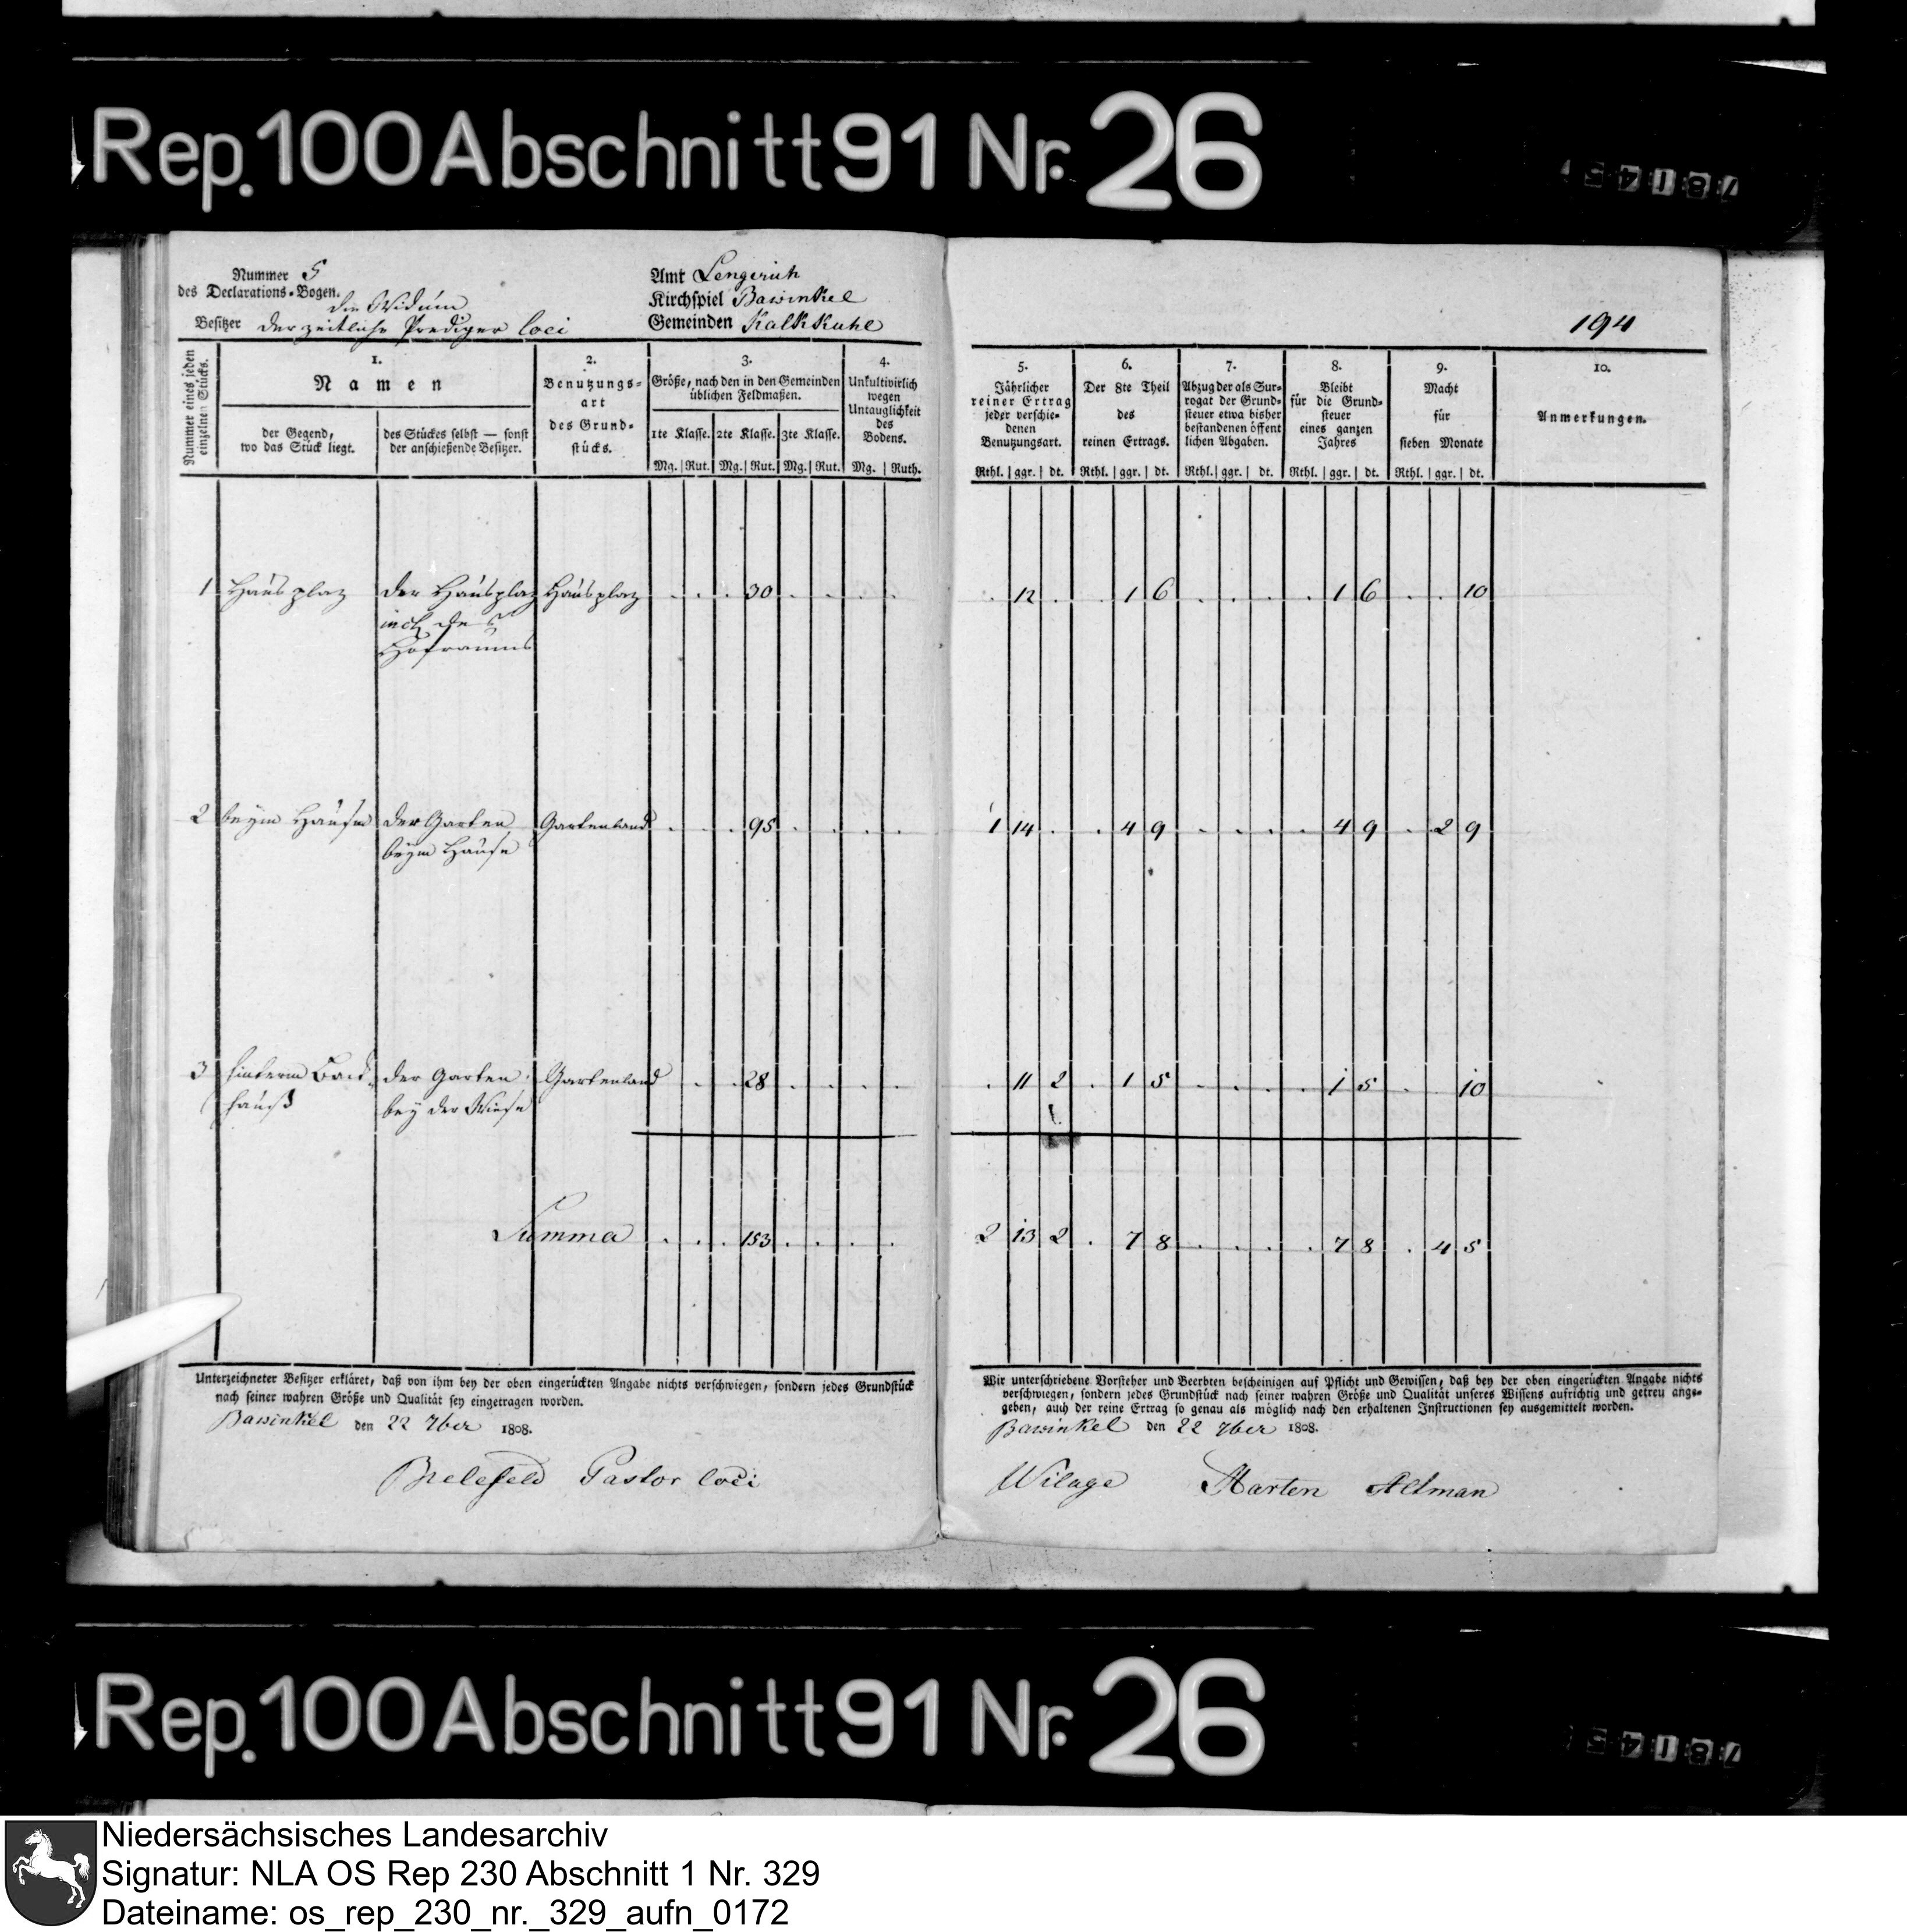 Rep. 100 Abschnitt 91 Nr. 26
Nummer 5
des Declarations-Bogen.
die Widum
Besitzer der zeitliche Prediger loci
Amt Lengerich
Kirchspiel Bawinkel
Gemeinden Kalkkuhle
194
Nummer eines jeden einzelnen Stücks.
1.
Namen
der Gegend,
wo das Stück liegt.
des Stückes selbst — sonst
der anschießende Besitzer.
2.
Benutzungs-
art
des Grund-
stücks.
3.
Größe, nach den in den Gemeinden
üblichen Feldmaßen.
1te Klasse. 2te Klasse. 3te Klasse.
Mg. Rut. Mg. Rut. Mg. Rut.
4.
Unkultivirlich
wegen
Untauglichkeit
des
Bodens.
Mg. Ruth.
5.
Jährlicher
reiner Ertrag
jeder verschie-
denen
Benutzungsart.
Rthl. ggr. dt.
6.
Der 8te Theil
des
reinen Ertrags.
Rthl. ggr. dt.
7.
Abzug der als Sur-
rogat der Grund-
steuer etwa bisher
bestandenen öffent
lichen Abgaben.
Rthl. ggr. dt.
8.
Bleibt
für die Grund-
steuer
eines ganzen
Jahres
Rthl. ggr. dt.
9.
Macht
für
sieben Monate
Rthl. ggr. dt.
10.
Anmerkungen.
1 Hausplatz der Hausplatz Hausplatz . . . 30 . . . . . 12 . . 1 6 . . . . 1 6 . . 10
incl. des
Hofraums
2 beym Hause der Garten Gartenland . . . 95 . . . . 1 14 . . 4 9 . . . . 4 9 . 2 9
beym Hause
3 hinterm Back- der Garten Gartenland . . 28 . . . . . 11 2 . 1 5 . . . . 1 5 . . 10
hauß bey der Wiese
Summa . . . 153 . . . . 2 13 2 . 7 8 . . . . 7 8 . 4 5
Unterzeichneter Besitzer erkläret, daß von ihm bey der oben eingerückten Angabe nichts verschwiegen, sondern jedes Grundstück
nach seiner wahren Größe und Qualität sey eingetragen worden.
Bawinkel den 22 7ber 1808.
Bielefeld Pastor loci
Wir unterschriebene Vorsteher und Beerbten bescheinigen auf Pflicht und Gewissen, daß bey der oben eingerückten Angabe nichts
verschwiegen, sondern jedes Grundstück nach seiner wahren Größe und Qualität unseres Wissens aufrichtig und getreu ange-
geben, auch der reine Ertrag so genau als möglich nach den erhaltenen Instructionen sey ausgemittelt worden.
Bawinkel den 22 7ber 1808.
Wilage Harten Altman
Rep. 100 Abschnitt 91 Nr. 26
Niedersächsisches Landesarchiv
Signatur: NLA OS Rep 230 Abschnitt 1 Nr. 329
Dateiname: os_rep_230_nr._329_aufn_0172